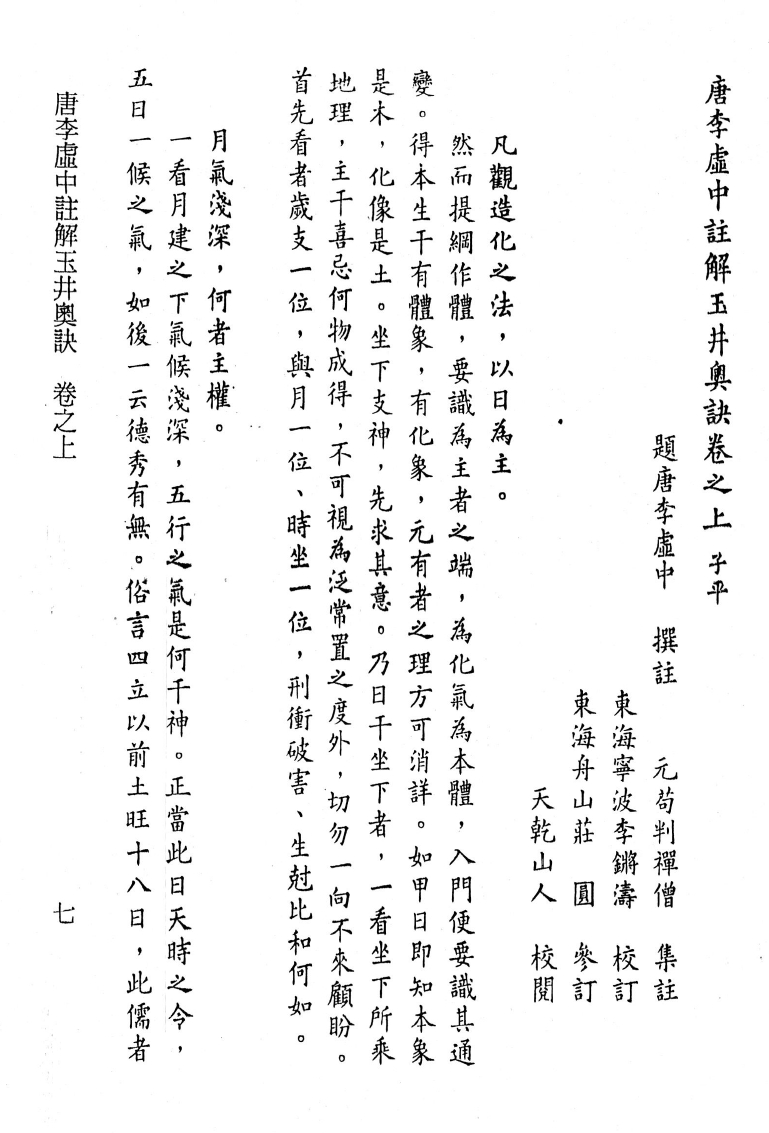 唐李虛中註解玉井奧訣卷之上 子平
題唐李虛中 撰註 元苟判禪僧 集註
東海寧波李鏘濤 校訂
東海舟山莊 圓 參訂
天乾山人 校閱
凡觀造化之法，以日為主。
然而提綱作體，要識為主者之端，為化氣為本體，入門便要識其通
變。得本生干有體象，有化象，元有者之理方可消詳。如甲日即知本象
是木，化像是土。坐下支神，先求其意。乃日干坐下者，一看坐下所乘
地理，主干喜忌何物成得，不可視為泛常置之度外，切勿一向不來顧盼。
首先看者歲支一位，與月一位、時坐一位，刑衝破害、生尅比和何如。
月氣淺深，何者主權。
一看月建之下氣候淺深，五行之氣是何干神。正當此日天時之令，
五日一候之氣，如後一云德秀有無。俗言四立以前土旺十八日，此儒者
唐李虛中註解玉井奧訣 卷之上
七